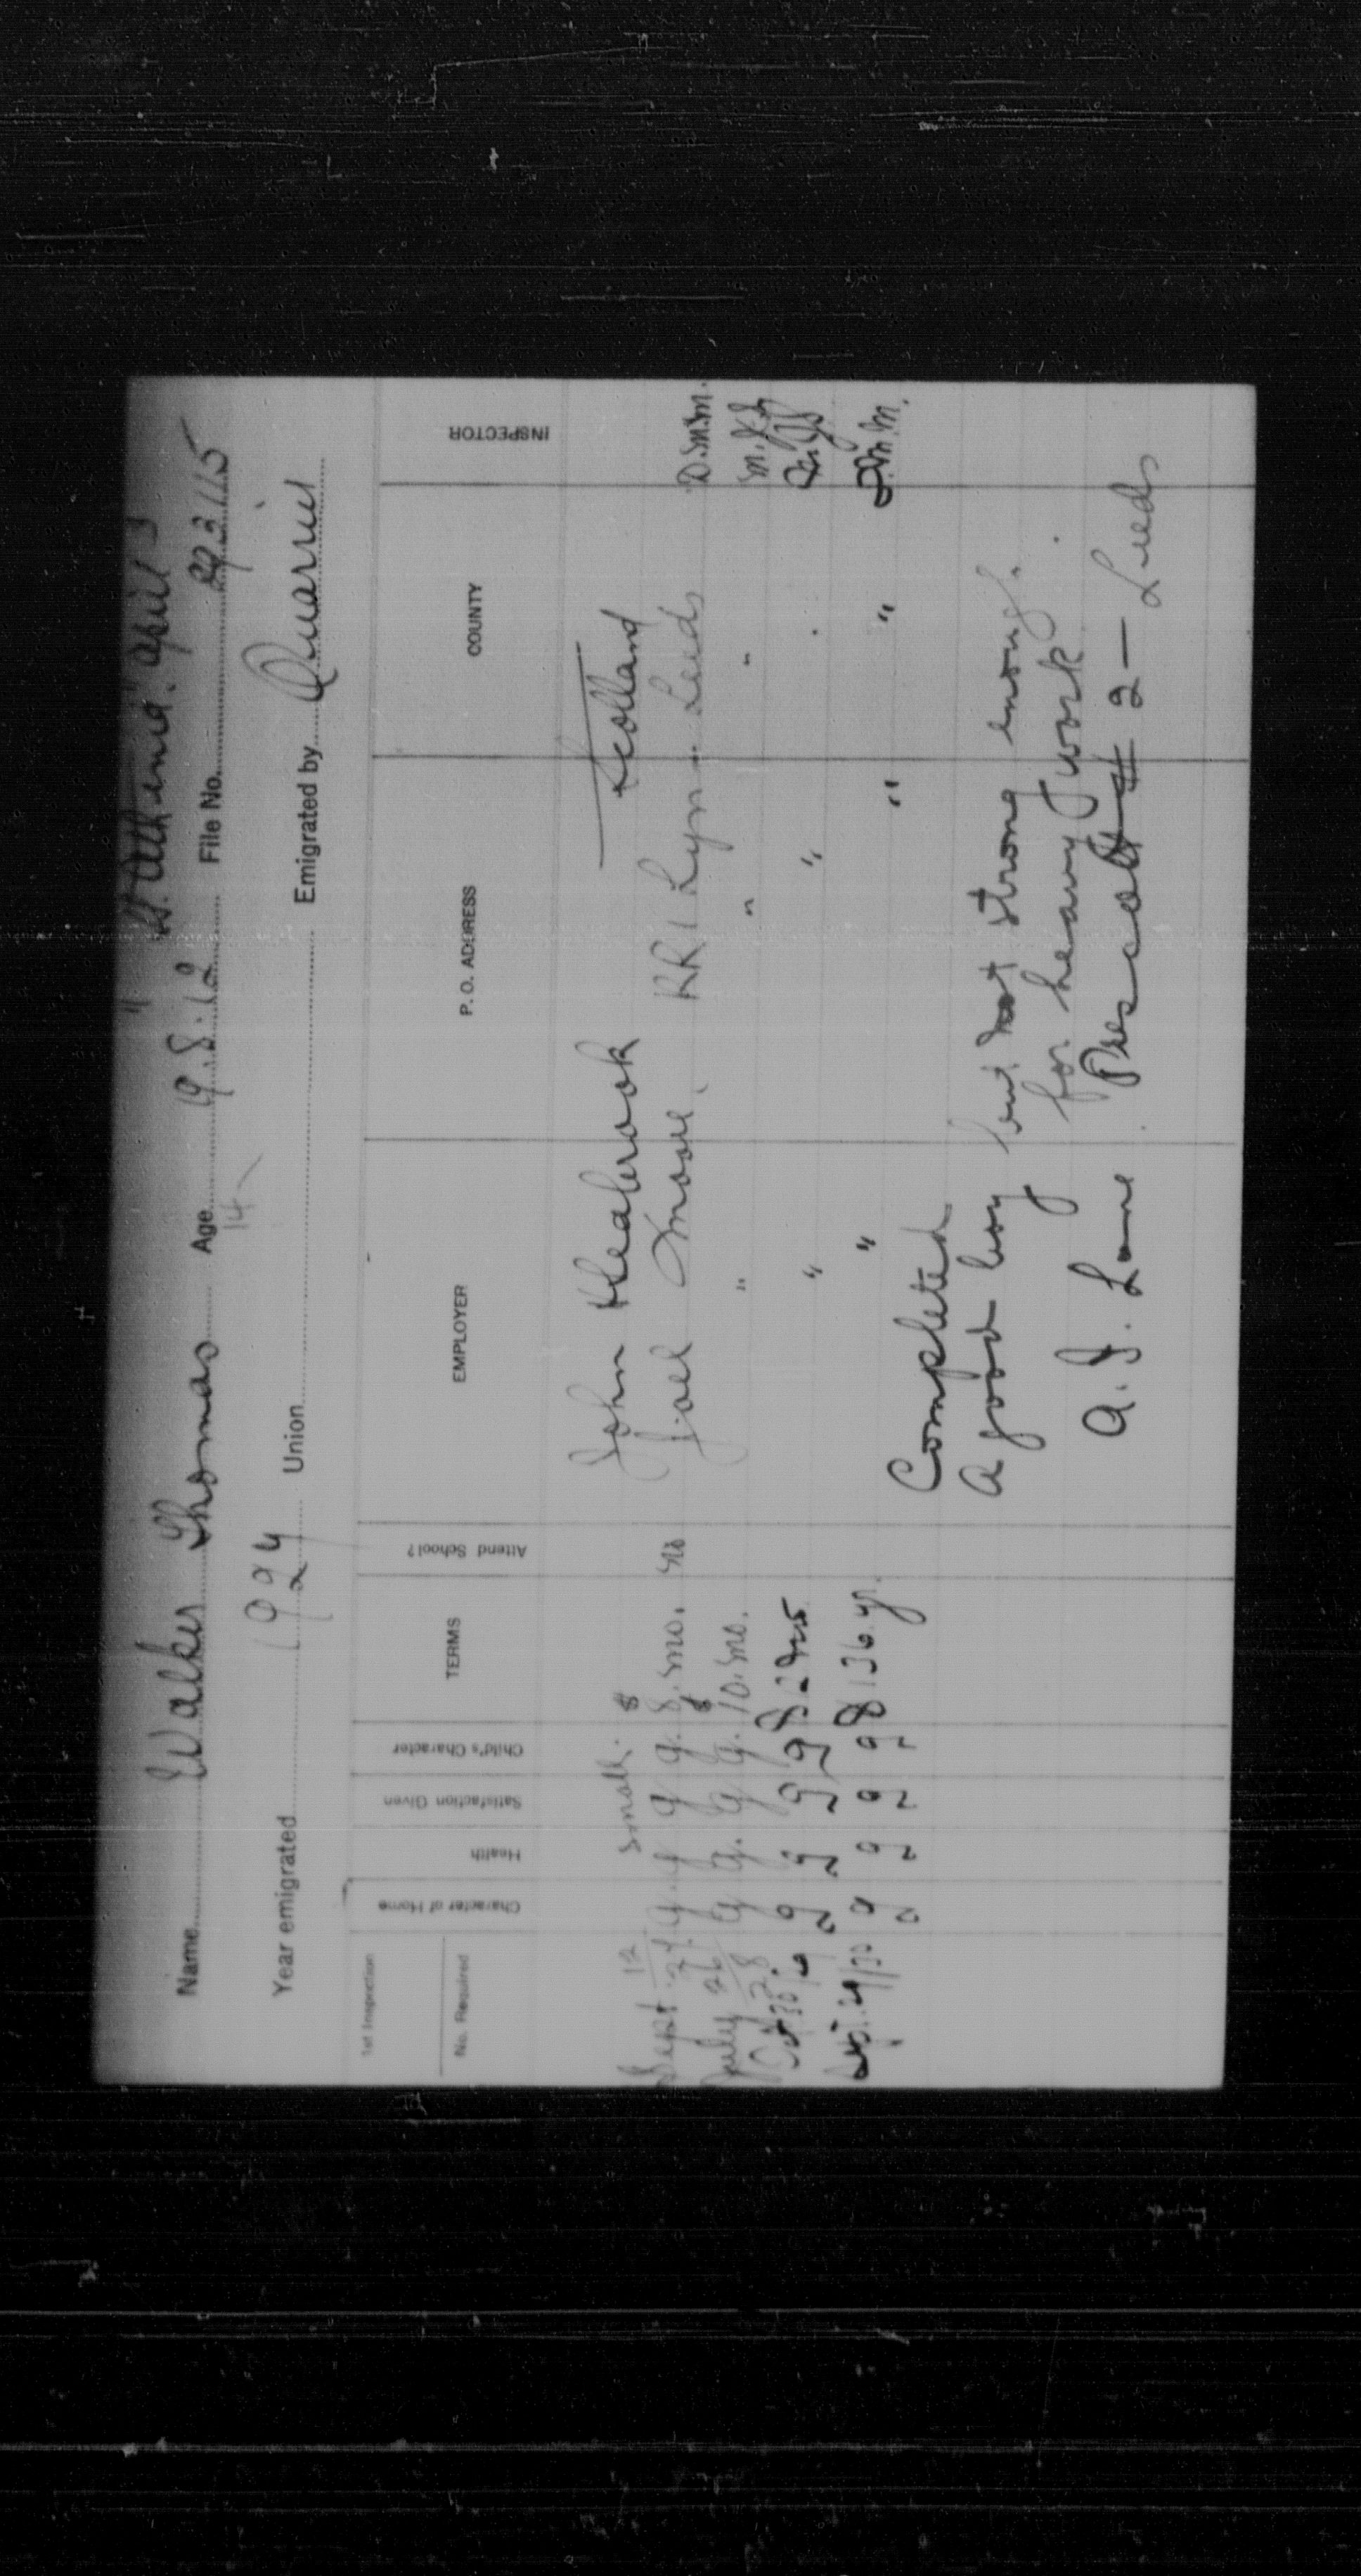 "Athenia" April 3
Name Walker Thomas Age 9.8.12 File No.
14
Year emigrated 1924 Union Emigrated by Quarrier
1st Inspection
No. Required Character of Home Health Satisfaction Given Child's Character TERMS Attend School? EMPLOYER P. O. ADDRESS COUNTY INSPECTOR
small. John Scotland
Sept 12/27 g g g g. $8. mo. no Joel Moore, RR 1 Lyn - Leeds D.M.M.
July 26/28 g g. g g. $10. mo. " " "
g g g g " " "
29/30 g g g g $136 yr. " " "
Completed
A good boy but not strong enough
for heavy work.
A. J. Lane Prescott # 2 - Leeds